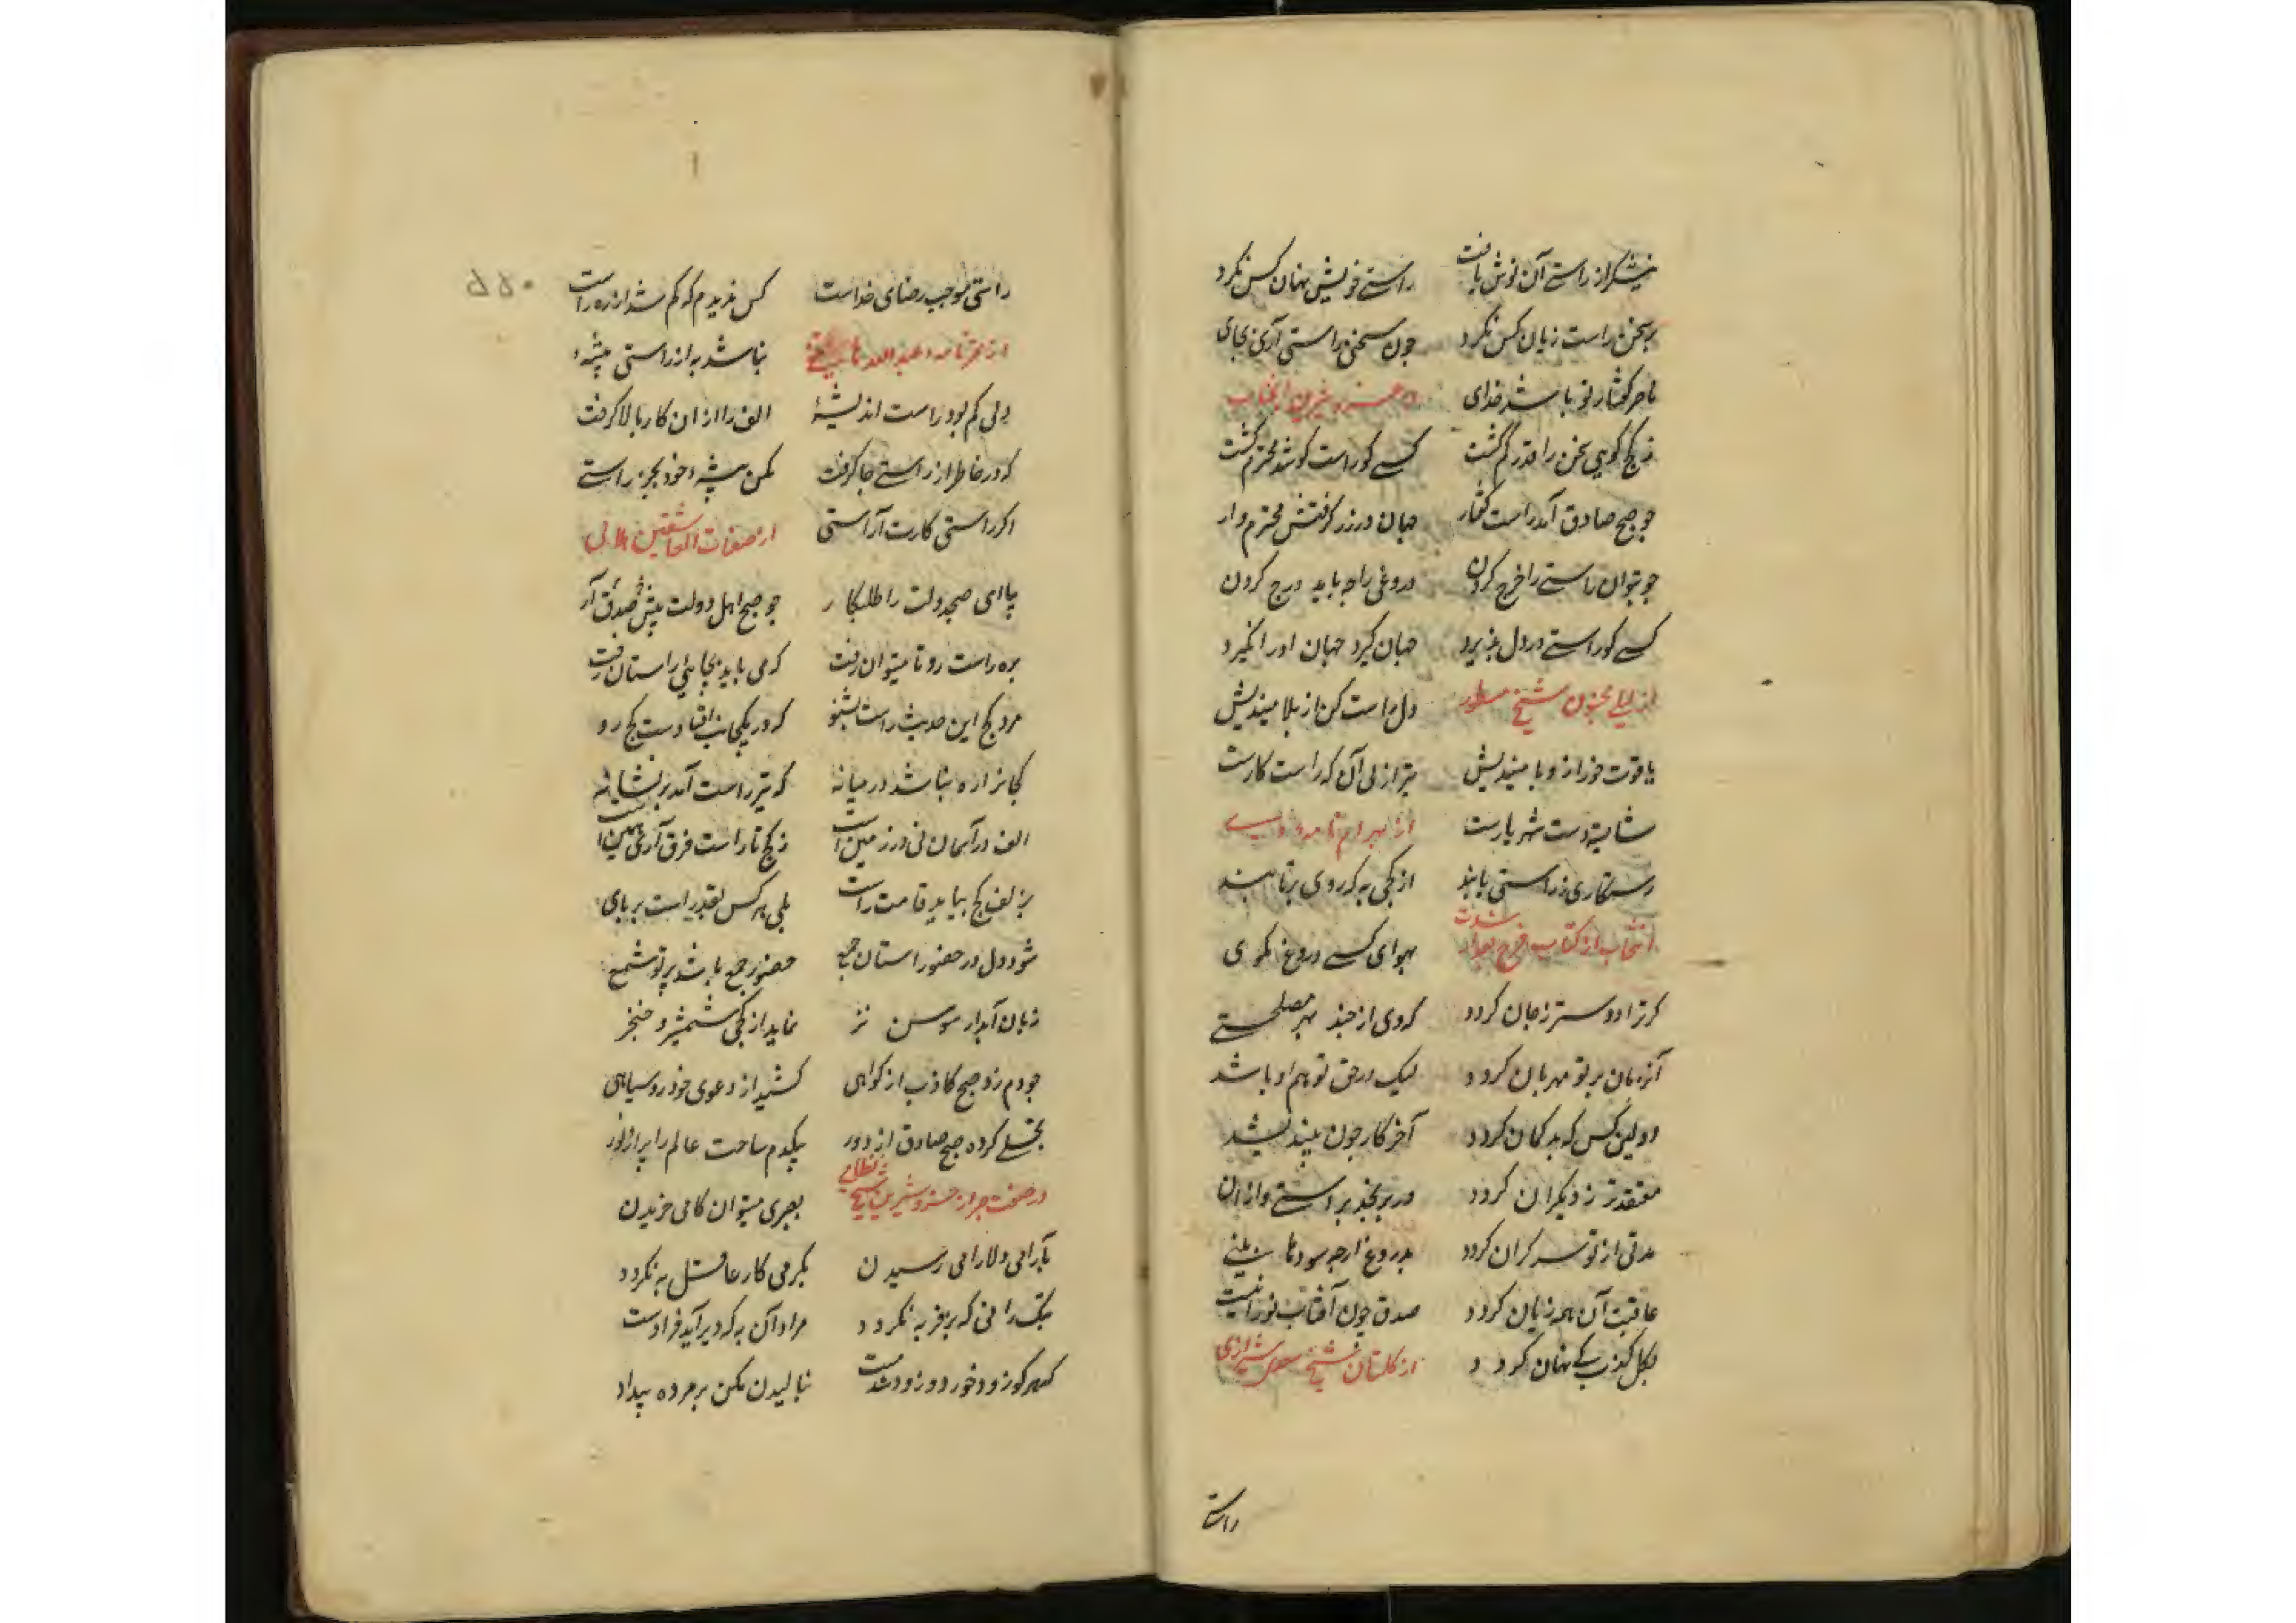 نیشکر از راستی آن نوش یافت راستی خویش نهان کس نکرد
بر سخن راست زیان کس نکرد چون سخن راستی آری بجای
ناصر گفتار تو باشد خدای خسرو شیرین
ز کج گویی سخن را قدر کم گشت کسی کو راست گو شد محترم گشت
چو صبح صادق آمد راست گفتار جهان در زر گرفتش محترم وار
چو بتوان راستی را خرج کردن دروغی را چه باید درج کردن
کسی کو راستی در دل پذیرد جهان گیرد جهان او را نگیرد
از لیلی مجنون شیخ مسطور دل راست کن از بلا میندیش
یاقوت خور از وبا میندیش تیر از پی آن که راست کارست
شایسته دست شهریارست از بهرام نامه وی
رستگاری ز راستی یابند از کجی به که روی برتابند
انتخاب از کتاب فرج بعد از شدت بهوای کسی دروغ مگوی
گر ترا دوستر ز جان گردد گر وی از چند بهر مصلحتی
آن زمان بر تو مهربان گردد لیک در حق تو هم او باشد
اولین کس که بدگمان گردد آخر کار چون بیندیشد
معتقدتر ز دیگران گردد ور برنجد براستی و از آن
مدتی از تو سر گران گردد بدروغ ار چه سودها بینی
عاقبت آن همه زیان گردد صدق چون آفتاب نورانیست
بگل کذب کی نهان گردد از گلستان شیخ سعدی شیرازی
راستی
راستی موجب رضای خداست کس ندیدم که گم شد از ره راست
نباشد به از راستی پیشهٔ
ولی کم بود راست اندیشهٔ الف را از ان کار بالا گرفت
که در خاطر از راستی جا گرفت مکن پیشهٔ خود بجز راستی
اگر راستی کارت آراستی از صفات العاشقین هلالی
بیا ای صبح دولت را طلبکار چو صبح اهل دولت پیش صدق آر
بره راست رو تا میتوان رفت که می باید بجا پای راستان رفت
مرو کج این حدیث راست بشنو که در یکجانب افتادست کج رو
کجا نرا ره نباشد در میانه که تیر راست آمد بر نشانه
الف در آسمان نی در زمین است ز کج تا راست فرق آری همین است
بزلف کج بیاید قامت راست بلی هر کس بقدر راست بر پای
شود دل در حضور راستان جمع حضور جمع باشد پرتو شمع
زبان آبدار سوسن تر نماید از کجی شمشیر و خنجر
چو دم زد صبح کاذب از گواهی کشید از دعوی خود رو سیاهی
تجلی کرده صبح صادق از دور بیکدم ساحت عالم را پر از نور
در صفت صبر از خسرو شیرین شیخ نظامی بصبری میتوان کامی خریدن
بآرامی دلارامی رسیدن بگرمی کار عاقل به نگردد
بتک رانی که بز فربه نگردد مراد آن به که دیر آید فرادست
که هر کو زود خورد و زود شد مست نبالیدن مکن بر مرده بیداد